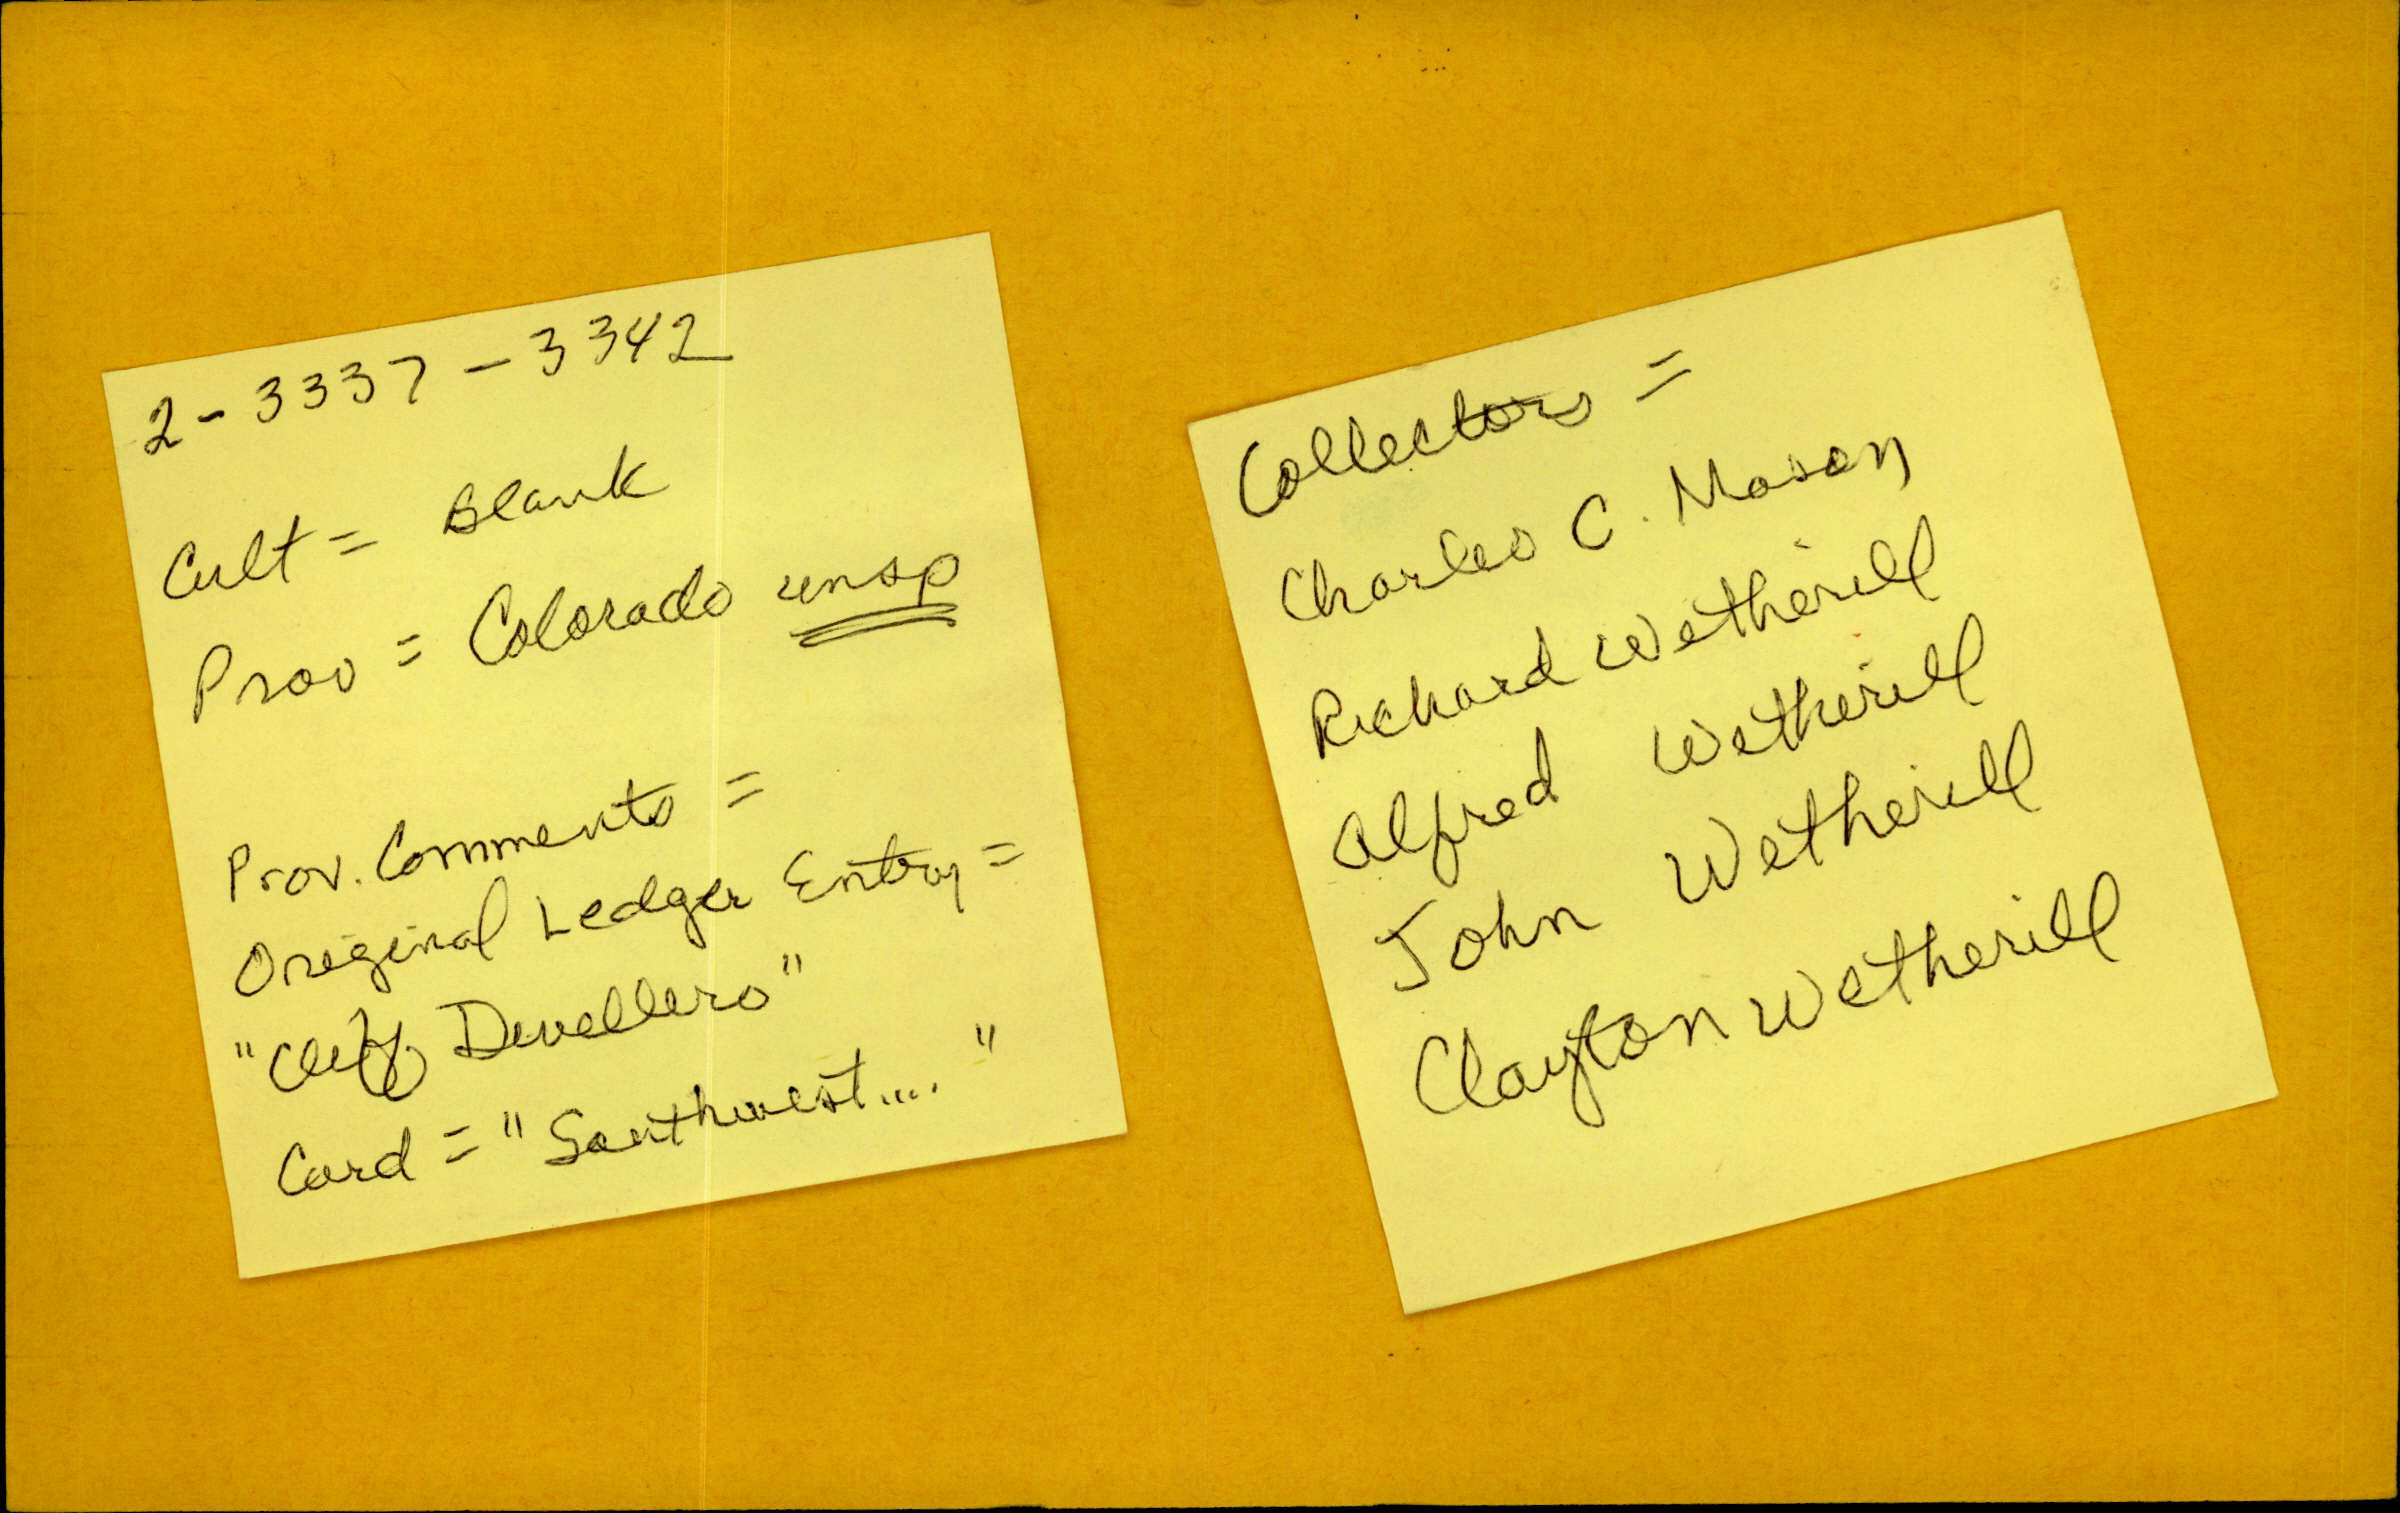 2-3337-3342
Cult = Blank
Prov = Colorado unsp
Prov. Comments =
Original Ledger Entry =
"Cliff Dwellers"
Card = "Southwest...."
Collectors =
Charles C. Mason
Richard Wetherill
Alfred Wetherill
John Wetherill
Clayton Wetherill